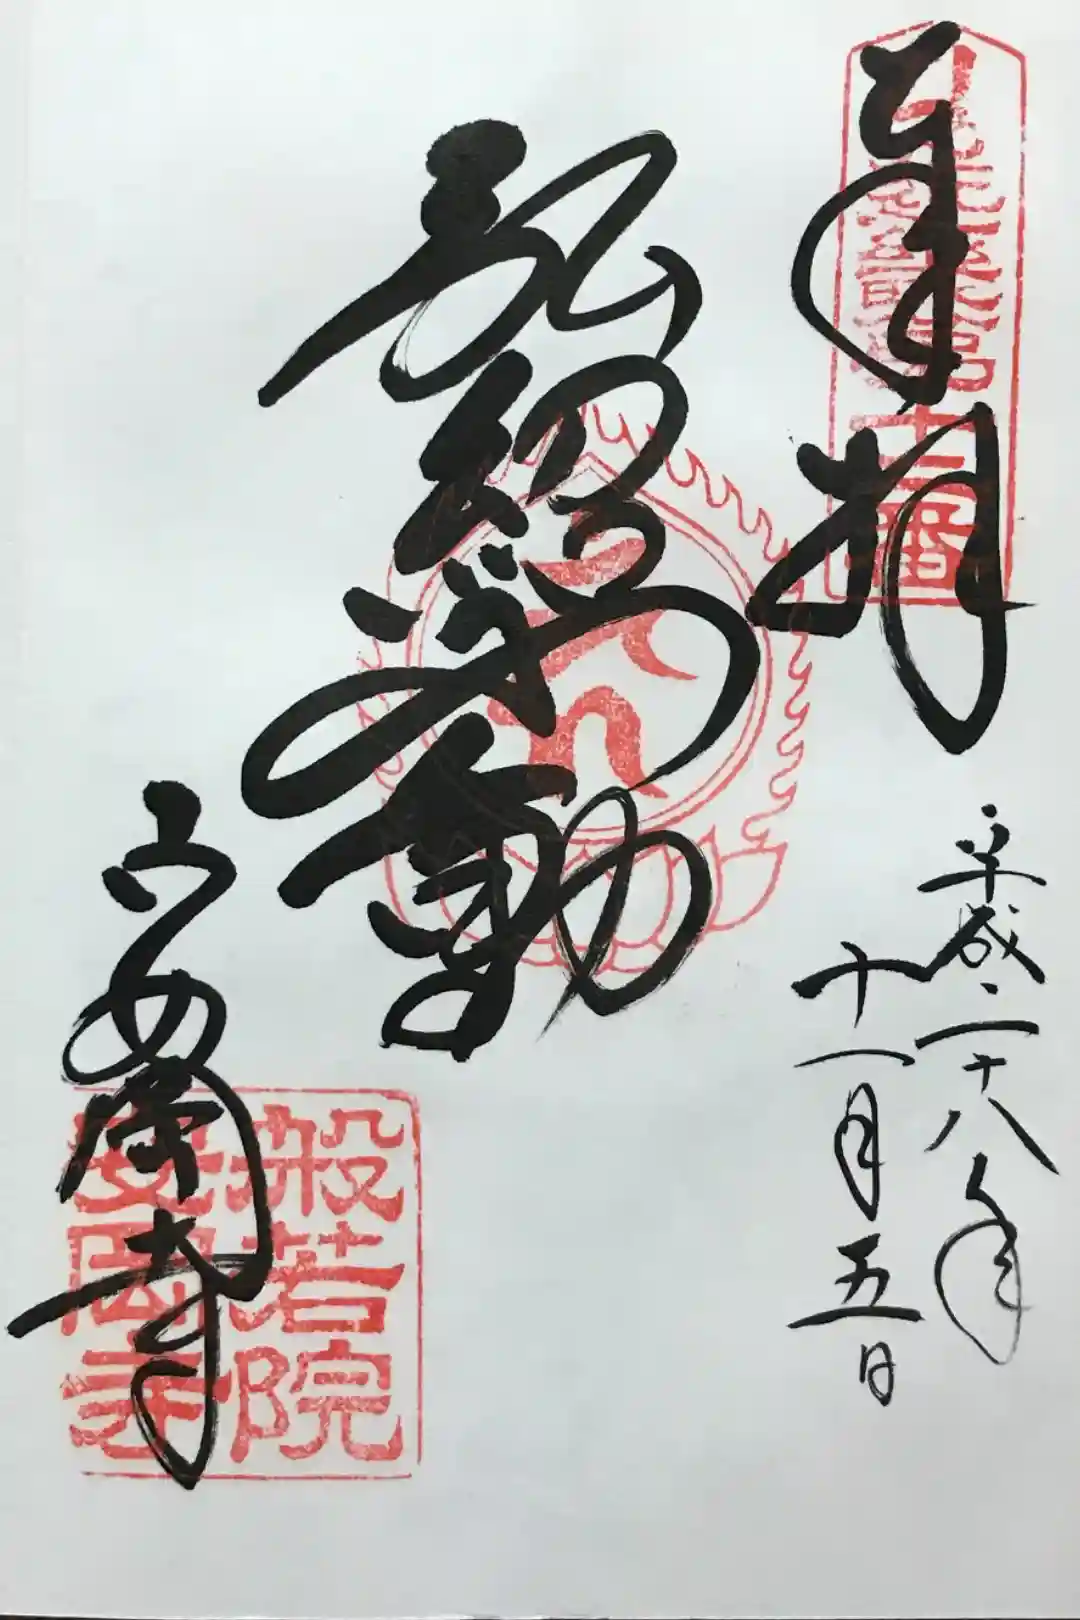 奉拝
平成二十八年
十一月五日
弘紹不動
安岡寺
十二番
般若院
安岡寺